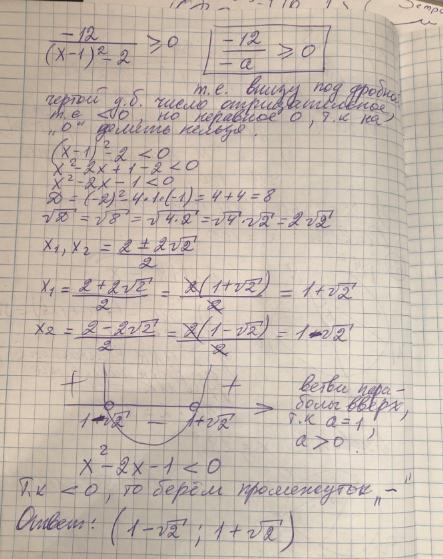 -12 / ((x-1)² - 2) ≥ 0   -12 / -a ≥ 0
т.е. внизу под дробной
чертой д.б. число отрицательное,
т.е. < 0, но неравное 0, т.к на
"0" делить нельзя.
(x-1)² - 2 < 0
x² - 2x + 1 - 2 < 0
x² - 2x - 1 < 0
D = (-2)² - 4·1·(-1) = 4 + 4 = 8
√D = √8 = √4·2 = √4·√2 = 2√2
x₁, x₂ = (2 ± 2√2) / 2
x₁ = (2 + 2√2) / 2 = 2(1 + √2) / 2 = 1 + √2
x₂ = (2 - 2√2) / 2 = 2(1 - √2) / 2 = 1 - √2
+ +
1-√2 - 1+√2
ветви пара-
болы вверх,
т.к a = 1,
a > 0.
x² - 2x - 1 < 0
Т.к < 0, то берём промежуток "-"
Ответ: (1-√2 ; 1+√2)